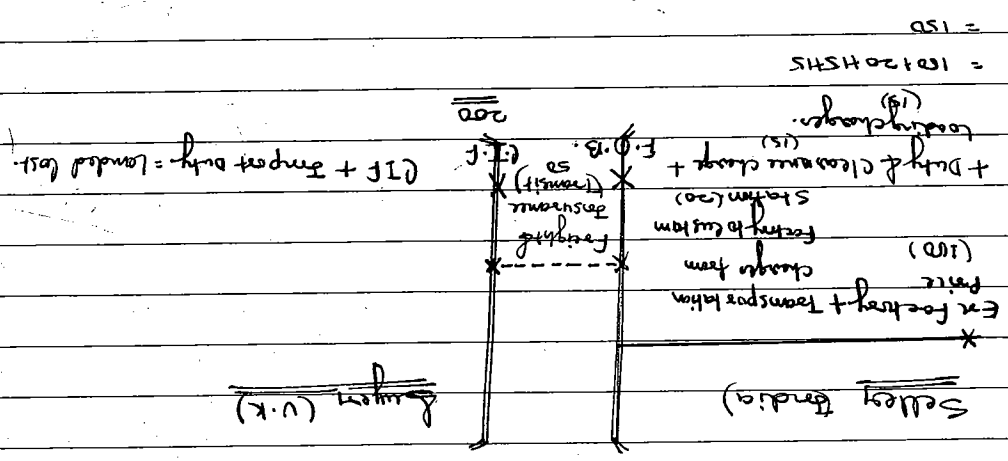 Seller (India)
Buyer (U.K)
Ex Factory + Transportation
Price charges from
(100) Factory to custom
Station (20)
+ Duty & Clearance charge +
(15)
Loading charges.
(15)
= 100+20+15+15
= 150
Freight &
Insurance
(Transit)
50
F.O.B.
C.I.F
200
CIF + Import Duty = Landed Cost.